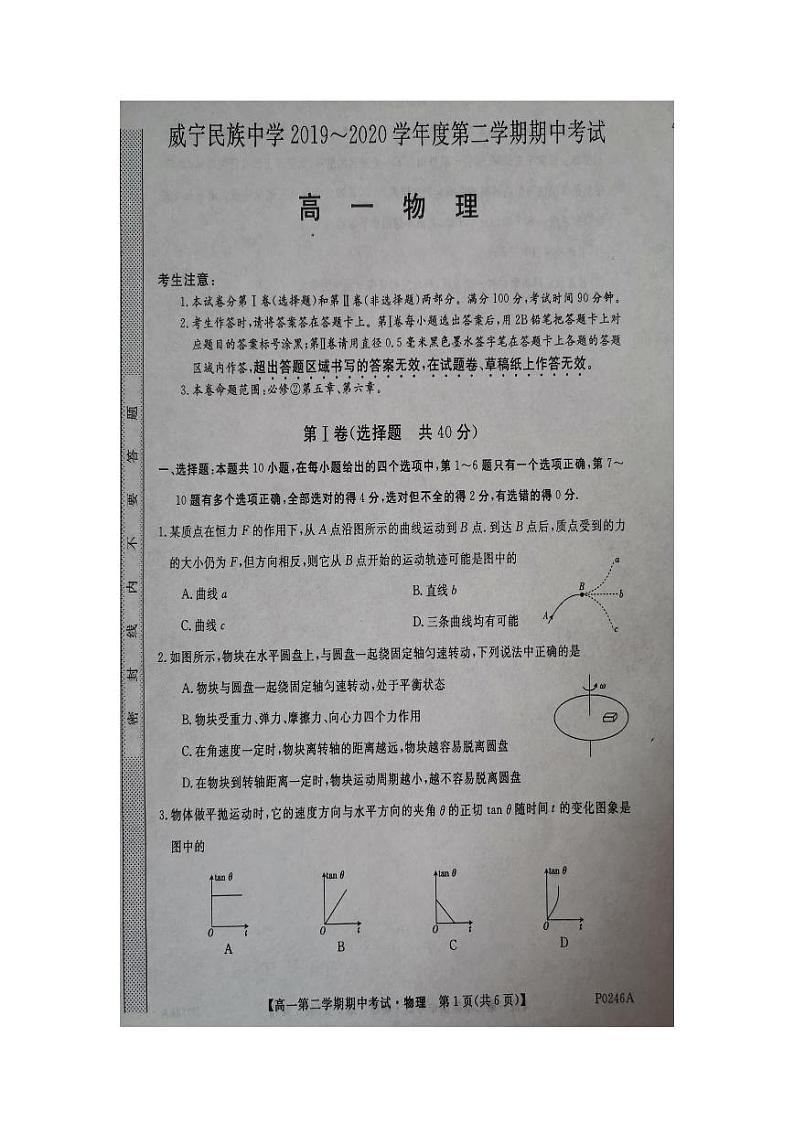 威宁民族中学2019～2020学年度第二学期期中考试
高一物理
考生注意：
1.本试卷分第Ⅰ卷(选择题)和第Ⅱ卷(非选择题)两部分。满分100分,考试时间90分钟。
2.考生作答时,请将答案答在答题卡上。第Ⅰ卷每小题选出答案后,用2B铅笔把答题卡上对
应题目的答案标号涂黑;第Ⅱ卷请用直径0.5毫米黑色墨水签字笔在答题卡上各题的答题
区域内作答,超出答题区域书写的答案无效,在试题卷、草稿纸上作答无效。
3.本卷命题范围:必修②第五章、第六章。
第Ⅰ卷(选择题 共40分)
一、选择题:本题共10小题,在每小题给出的四个选项中,第1～6题只有一个选项正确,第7～
10题有多个选项正确,全部选对的得4分,选对但不全的得2分,有选错的得0分.
1.某质点在恒力F的作用下,从A点沿图所示的曲线运动到B点.到达B点后,质点受到的力
的大小仍为F,但方向相反,则它从B点开始的运动轨迹可能是图中的
A.曲线a
B.直线b
C.曲线c
D.三条曲线均有可能
A
B
a
b
c
2.如图所示,物块在水平圆盘上,与圆盘一起绕固定轴匀速转动,下列说法中正确的是
A.物块与圆盘一起绕固定轴匀速转动,处于平衡状态
B.物块受重力、弹力、摩擦力、向心力四个力作用
C.在角速度一定时,物块离转轴的距离越远,物块越容易脱离圆盘
D.在物块到转轴距离一定时,物块运动周期越小,越不容易脱离圆盘
ω
3.物体做平抛运动时,它的速度方向与水平方向的夹角θ的正切tan θ随时间t的变化图象是
图中的
tan θ
O
t
A
tan θ
O
t
B
tan θ
O
t
C
tan θ
O
t
D
【高一第二学期期中考试·物理 第1页(共6页)】
P0246A
密封线内不要答题